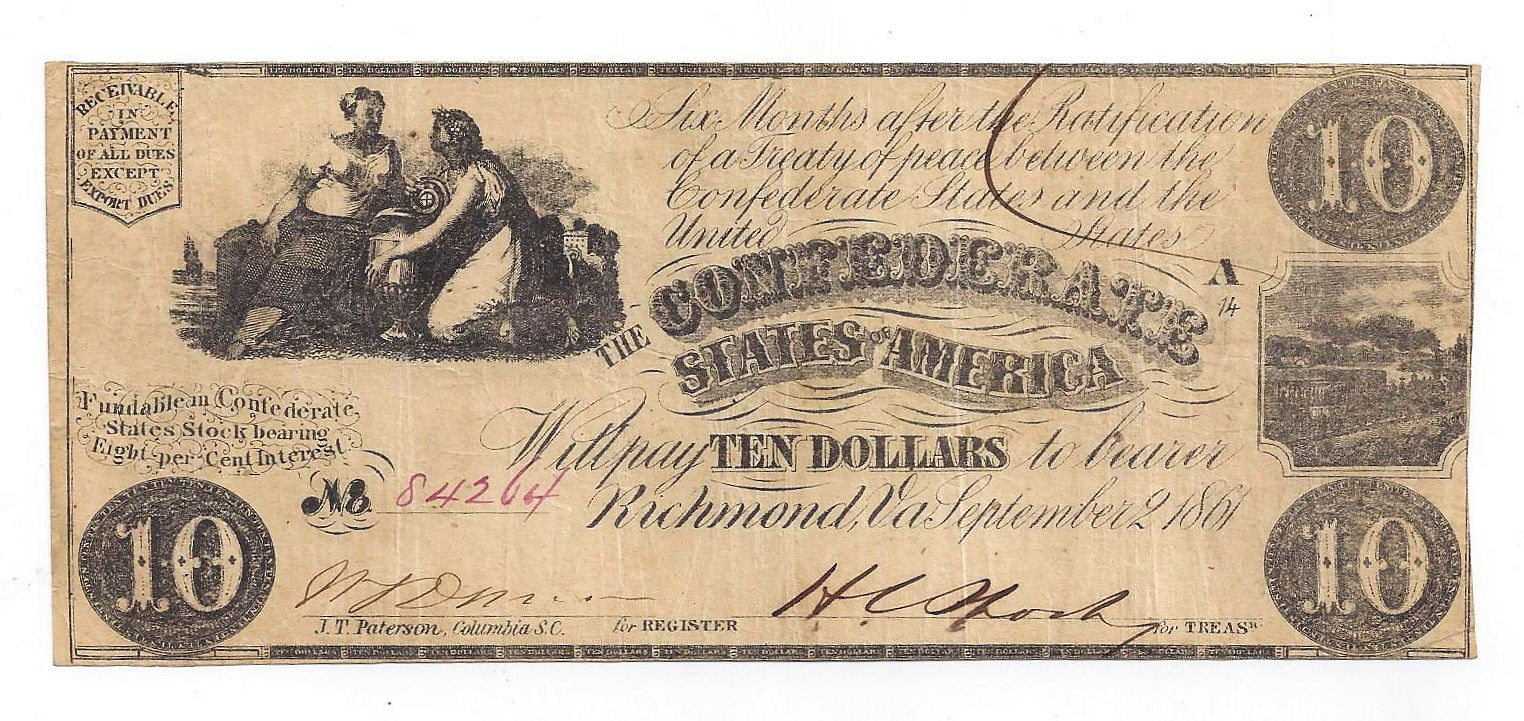 RECEIVABLE
IN
PAYMENT
OF ALL DUES
EXCEPT
EXPORT DUES
Six Months after the Ratification
of a Treaty of peace between the
Confederate States and the
United States
10
A
14
THE CONFEDERATE
STATES OF AMERICA
Fundable in Confederate
States Stock bearing
Eight per Cent Interest
Will pay TEN DOLLARS to bearer
No 84264
Richmond, Va September 2 1861
10
10
J.T. Paterson, Columbia S.C.
for REGISTER
for TREASR